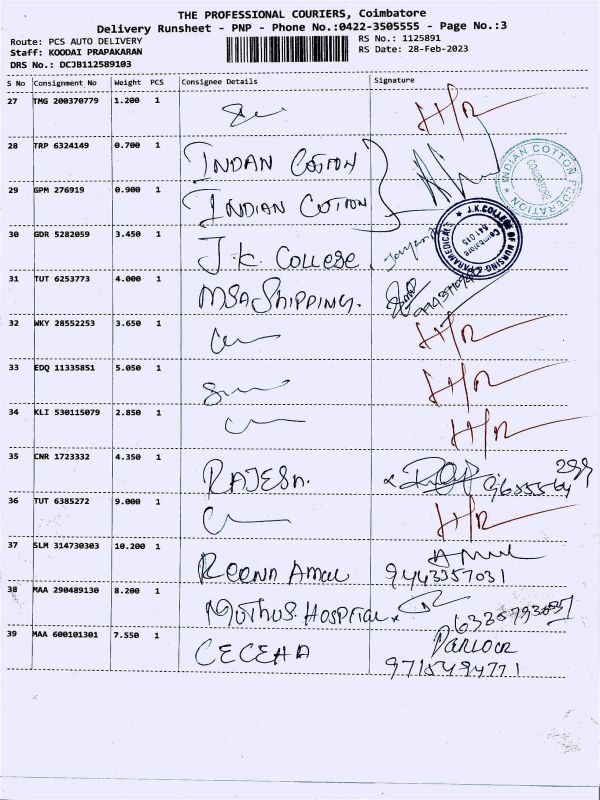 THE PROFESSIONAL COURIERS, Coimbatore
Delivery Runsheet - PNP - Phone No.:0422-3505555 - Page No.:3
Route: PCS AUTO DELIVERY
RS No.: 1125891
Staff: KOODAI PRAPAKARAN
RS Date: 28-Feb-2023
DRS No.: DCJB112589103
S No Consignment No Weight PCS Consignee Details Signature
27 TMG 200370779 1.200 1 H/R
28 TRP 6324149 0.700 1 INDAN COTTON
INDIAN COTTON FEDERATION COIMBATORE
29 GPM 276919 0.900 1 INDIAN COTTON
30 GDR 5282059 3.450 1 J.K. COLLEGE
J.K.COLLEGE OF NURSING & PARAMEDICALS Coimbatore 641 015
31 TUT 6253773 4.000 1 MSA SHIPPING.
32 WKY 28552253 3.650 1 H/R
33 EDQ 11335851 5.050 1 H/R
34 KLI 530115079 2.850 1 H/R
35 CNR 1723332 4.350 1 RAJESH.
36 TUT 6385272 9.000 1 H/R
37 SLM 314730303 10.200 1 REENA AMAL AMUL
9443357031
38 MAA 290489130 8.200 1 MUTHUS HOSPITAL
39 MAA 600101301 7.550 1 CECEHA PARLOUR